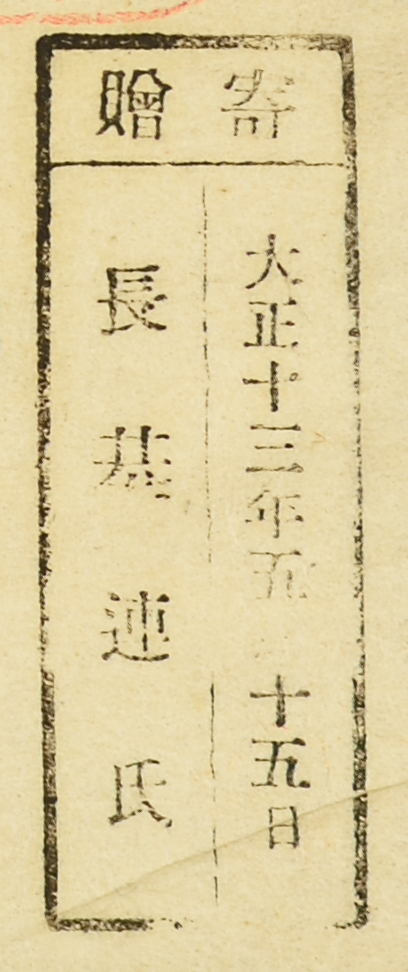 寄贈
大正十三年五 十五日
長基連氏